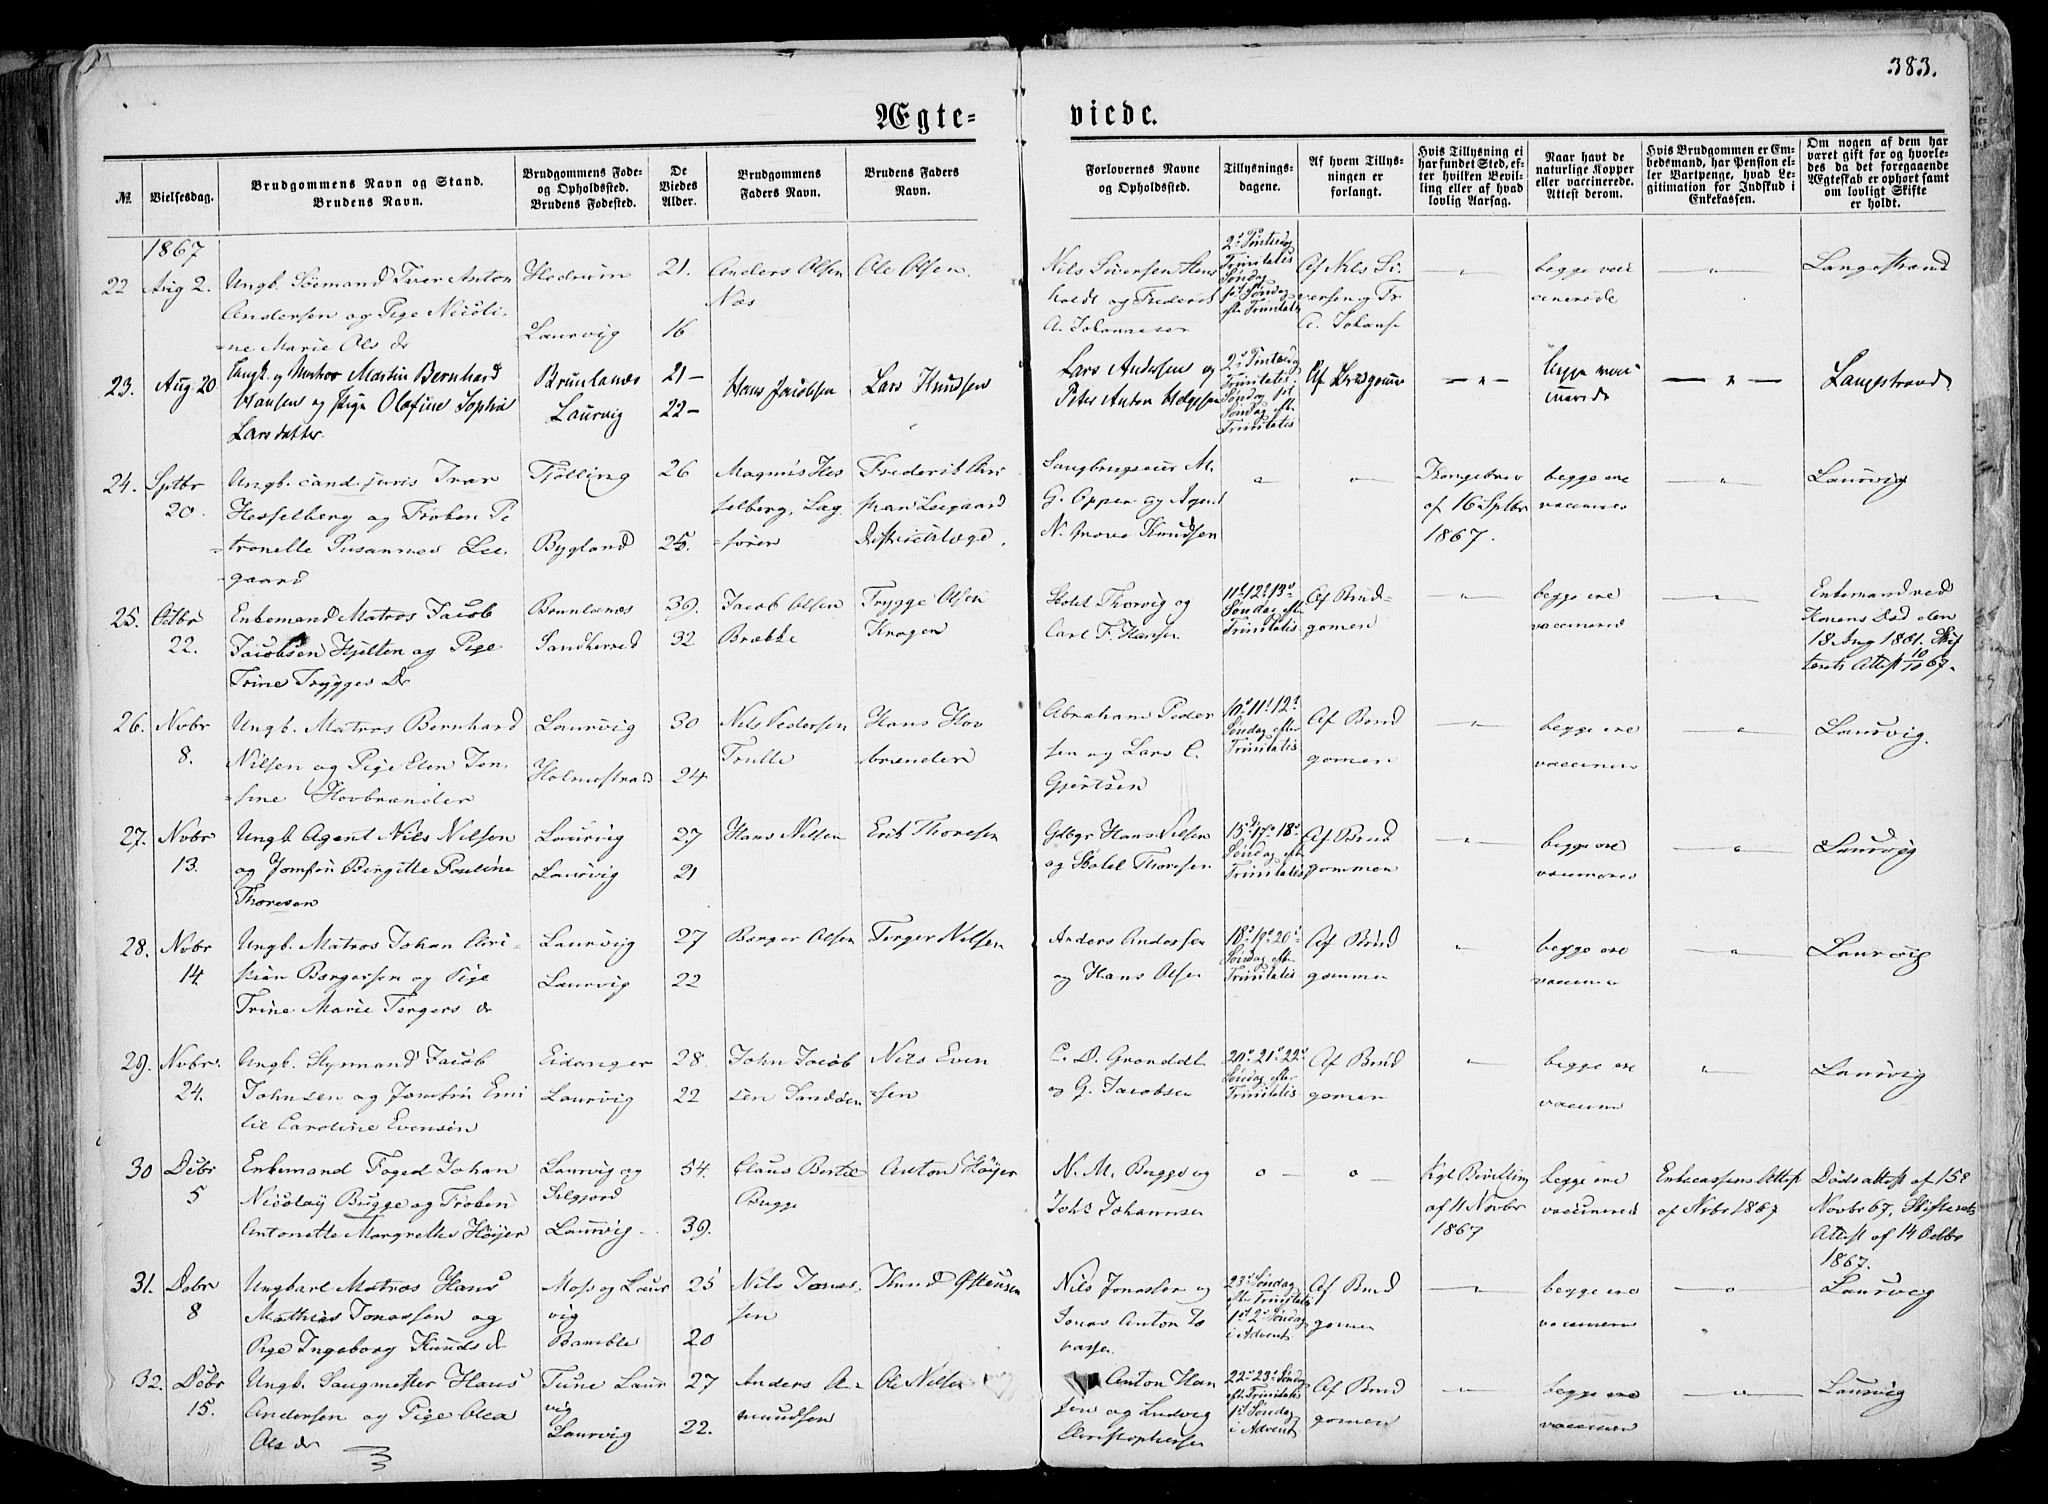 383.
Ægte-
viede.
№
Vielsesdag.
Brudgommens Navn og Stand.
Brudens Navn.
Brudgommens Føde-
og Opholdssted.
Brudens Fødested.
De
Viedes
Alder.
Brudgommens
Faders Navn.
Brudens Faders
Navn.
Forlovernes Navne
og Opholdssted.
Tillysnings-
dagene.
Af hvem Tillys-
ningen er
forlangt.
Hvis Tillysning ei
har fundet Sted, ef-
ter hvilken Bevil-
ling eller af hvad
lovlig Aarsag.
Naar havt de
naturlige Kopper
eller vaccinerede.
Attest derom.
Hvis Brudgommen er Em-
bedsmand, har Pension el-
ler Vartpenge, hvad Le-
gitimation for Indskud i
Enkekassen.
Om nogen af dem har
været gift før og hvorle-
des da det foregaaende
Ægteskab er ophørt samt
om lovligt Skifte
er holdt.
1867
22 Aug 2.
Ungb. Søemand Iver Anton
Andersen og Pige Nicoli-
ne Marie Ols dr
Hedrum
Laurvig
21.
16
Anders Olsen
Næs
Ole Olsen.
Nils Siversen
holdt og Frederik
A. Johannesen
2d Pintsedag
Trinitatis
Søndag
1st Søndag
eft Trinitatis
Af Nils Si-
versen og Fr
A. Johans
begge vacc
cinerede
Langestrand
23. Aug. 20
Ungk. og Matros Martin Bernhard
Hansen og Pige Olafine Sophie
Larsdatter.
Brunlanæs
Laurvig
21 -
22 -
Hans Jacobsen
Lars Knudsen
Lars Andersen og
Peter Anton
2d Pintsedag
Trinitatis
Søndag 1st
Søndag eft.
Trinitatis
Af Brudgom
begge vacci-
nerede
Langestrand
24. Sptbr
20.
Ungb. cand. juris Iver
Hesselberg og Frøken Pe
tronelle Susanne Lee
gaard
Tjølling
Bygland
26
25.
Magnus Hes
selberg, Sag
fører
Frederik Chri
stian Leegaard
Districtslæge.
Saugbrugseier M.
G. Oppen og Agent
N. Knudsen
Kongebrev
af 16 Sptbr
1867.
begge ere
vaccineres
Laurvig
25. Octbr
22.
Enkemand Matros Jacob
Jacobsen Hjelten og Pige
Trine Trygges Dr
Brunlanæs
Sandherred
39.
32
Jacob Olsen
Brække
Trygge Olsen
Krogen
Skolel Thorvig og
Carl F. Hansen
11t 12t 13d
Søndag eft.
Trinitatis
Af Brud-
gomen
begge ere
vaccinered
Enkemand ved
Konens Død den
18. Aug 1861. Skif
terets Attest 10/10 67.
26. Nvbr
8.
Ungb. Matros Bernhard
Nilsen og Pige Elen Jen-
sine Hovbrænder
Laurvig
Holmestrand
30
24
Nils Pedersen
Trulle
Hans Hov
brænder
Abraham Peder
sen og Lars C.
Gjertsen
10t 11t 12t
Søndag efter
Trinitatis
Af Brud
gomen
begge ere
vaccineres
Laurvig.
27. Nvbr
13.
Ungb. Agent Nils Nilsen
og Jomfru Birgitte Pauline
Thoresen
Laurvig
Laurvig
27
21
Hans Nilsen
Erik Thoresen
Gdbgr Hans Nilsen
og Skolel Thoresen
15d 17d 18d
Søndag eft
Trinitatis
Af Brud
gommen
begge ere
vaccineres
Laurvig
28. Nvbr
14.
Ungb. Matros Johan Chri-
stian Børgersen og Pige
Trine Marie Tergers dr
Laurvig
Laurvig
27
22
Børger Olsen
Terger Nilsen
Anders Andersen
og Hans Olsen
18d 19d 20d
Søndag eftr
Trinitatis
Af Brud
gommen
begge ere
vaccine
Laurvig
29. Nvbr.
24.
Ungb. Styrmand Jacob
Johnsen og Jomfru Emi
lie Caroline Evensen
Eidanger
Laurvig
28.
22
John Jacob
sen Sandøen
Nils Even
sen
C. D. Granddt
og G. Jacobsen
20d 21d 22d
Søndag efter
Trinitatis
Af Brud
gomen
begge ere
vaccine
Laurvig
30 Dcbr
5
Enkemand Foged Johan
Nicolay Bugge og Frøken
Antonette Margrethe Höyer
Laurvig og
Selgjord
Laurvig
54.
39.
Claus Bertel
Bugge
Anton Höyer
N. M. Bugge og
Johs Johannsen
Kgl Bevilling
af 11 Novbr
1867
begge ere
vaccinered
Enkecassens Attest
af Nvbr 1867
Dødsattest af 15d
Novbr 67, Skifterets
Attest af 14 Octbr
1867.
31. Dcbr
8
Ungkarl Matros Hans
Mathias Jonassen og
Pige Ingeborg Knuds dr
Moss og Laur
vig
Bamble
25
20
Nils Jonas-
sen
Knud Østensen
Nils Jonassen og
Jonas Anton To
vassen
23d Søndag
eftr Trinitatis
1st 2d Søndag
i Advent
Af Brud
gomen
begge ere
vaccinere
Laurvig
32. Dcbr
15.
Ungb. Saugmester Hans
Andersen og Pige Olea
Ols dr
Tune Laur
vig
Laurvig
27
22.
Anders A-
mundsen
Ole Nilsen
Anton Han
sen og Ludvig
Christophersen
22d 23d Sønda
eft. Trinitatis
1st Søndag
i Advent
Af Brud
gomen
begge ere
vaccinere
Laurvig